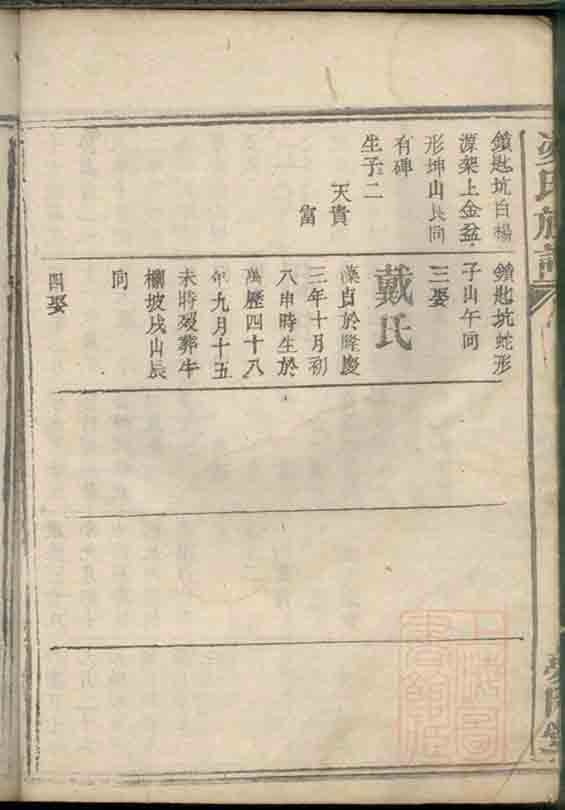 鎖匙坑白楊
源架上金盆
形坤山艮向
有碑
生子二
天貴
富
鎖匙坑蛇形
子山午向
三娶
戴氏
藻貞於隆慶
三年十月初
八申時生於
萬歷四十八
年九月十五
未時歿葬牛
欄坡戌山辰
向
四娶
氏族譜
上海圖
書館藏